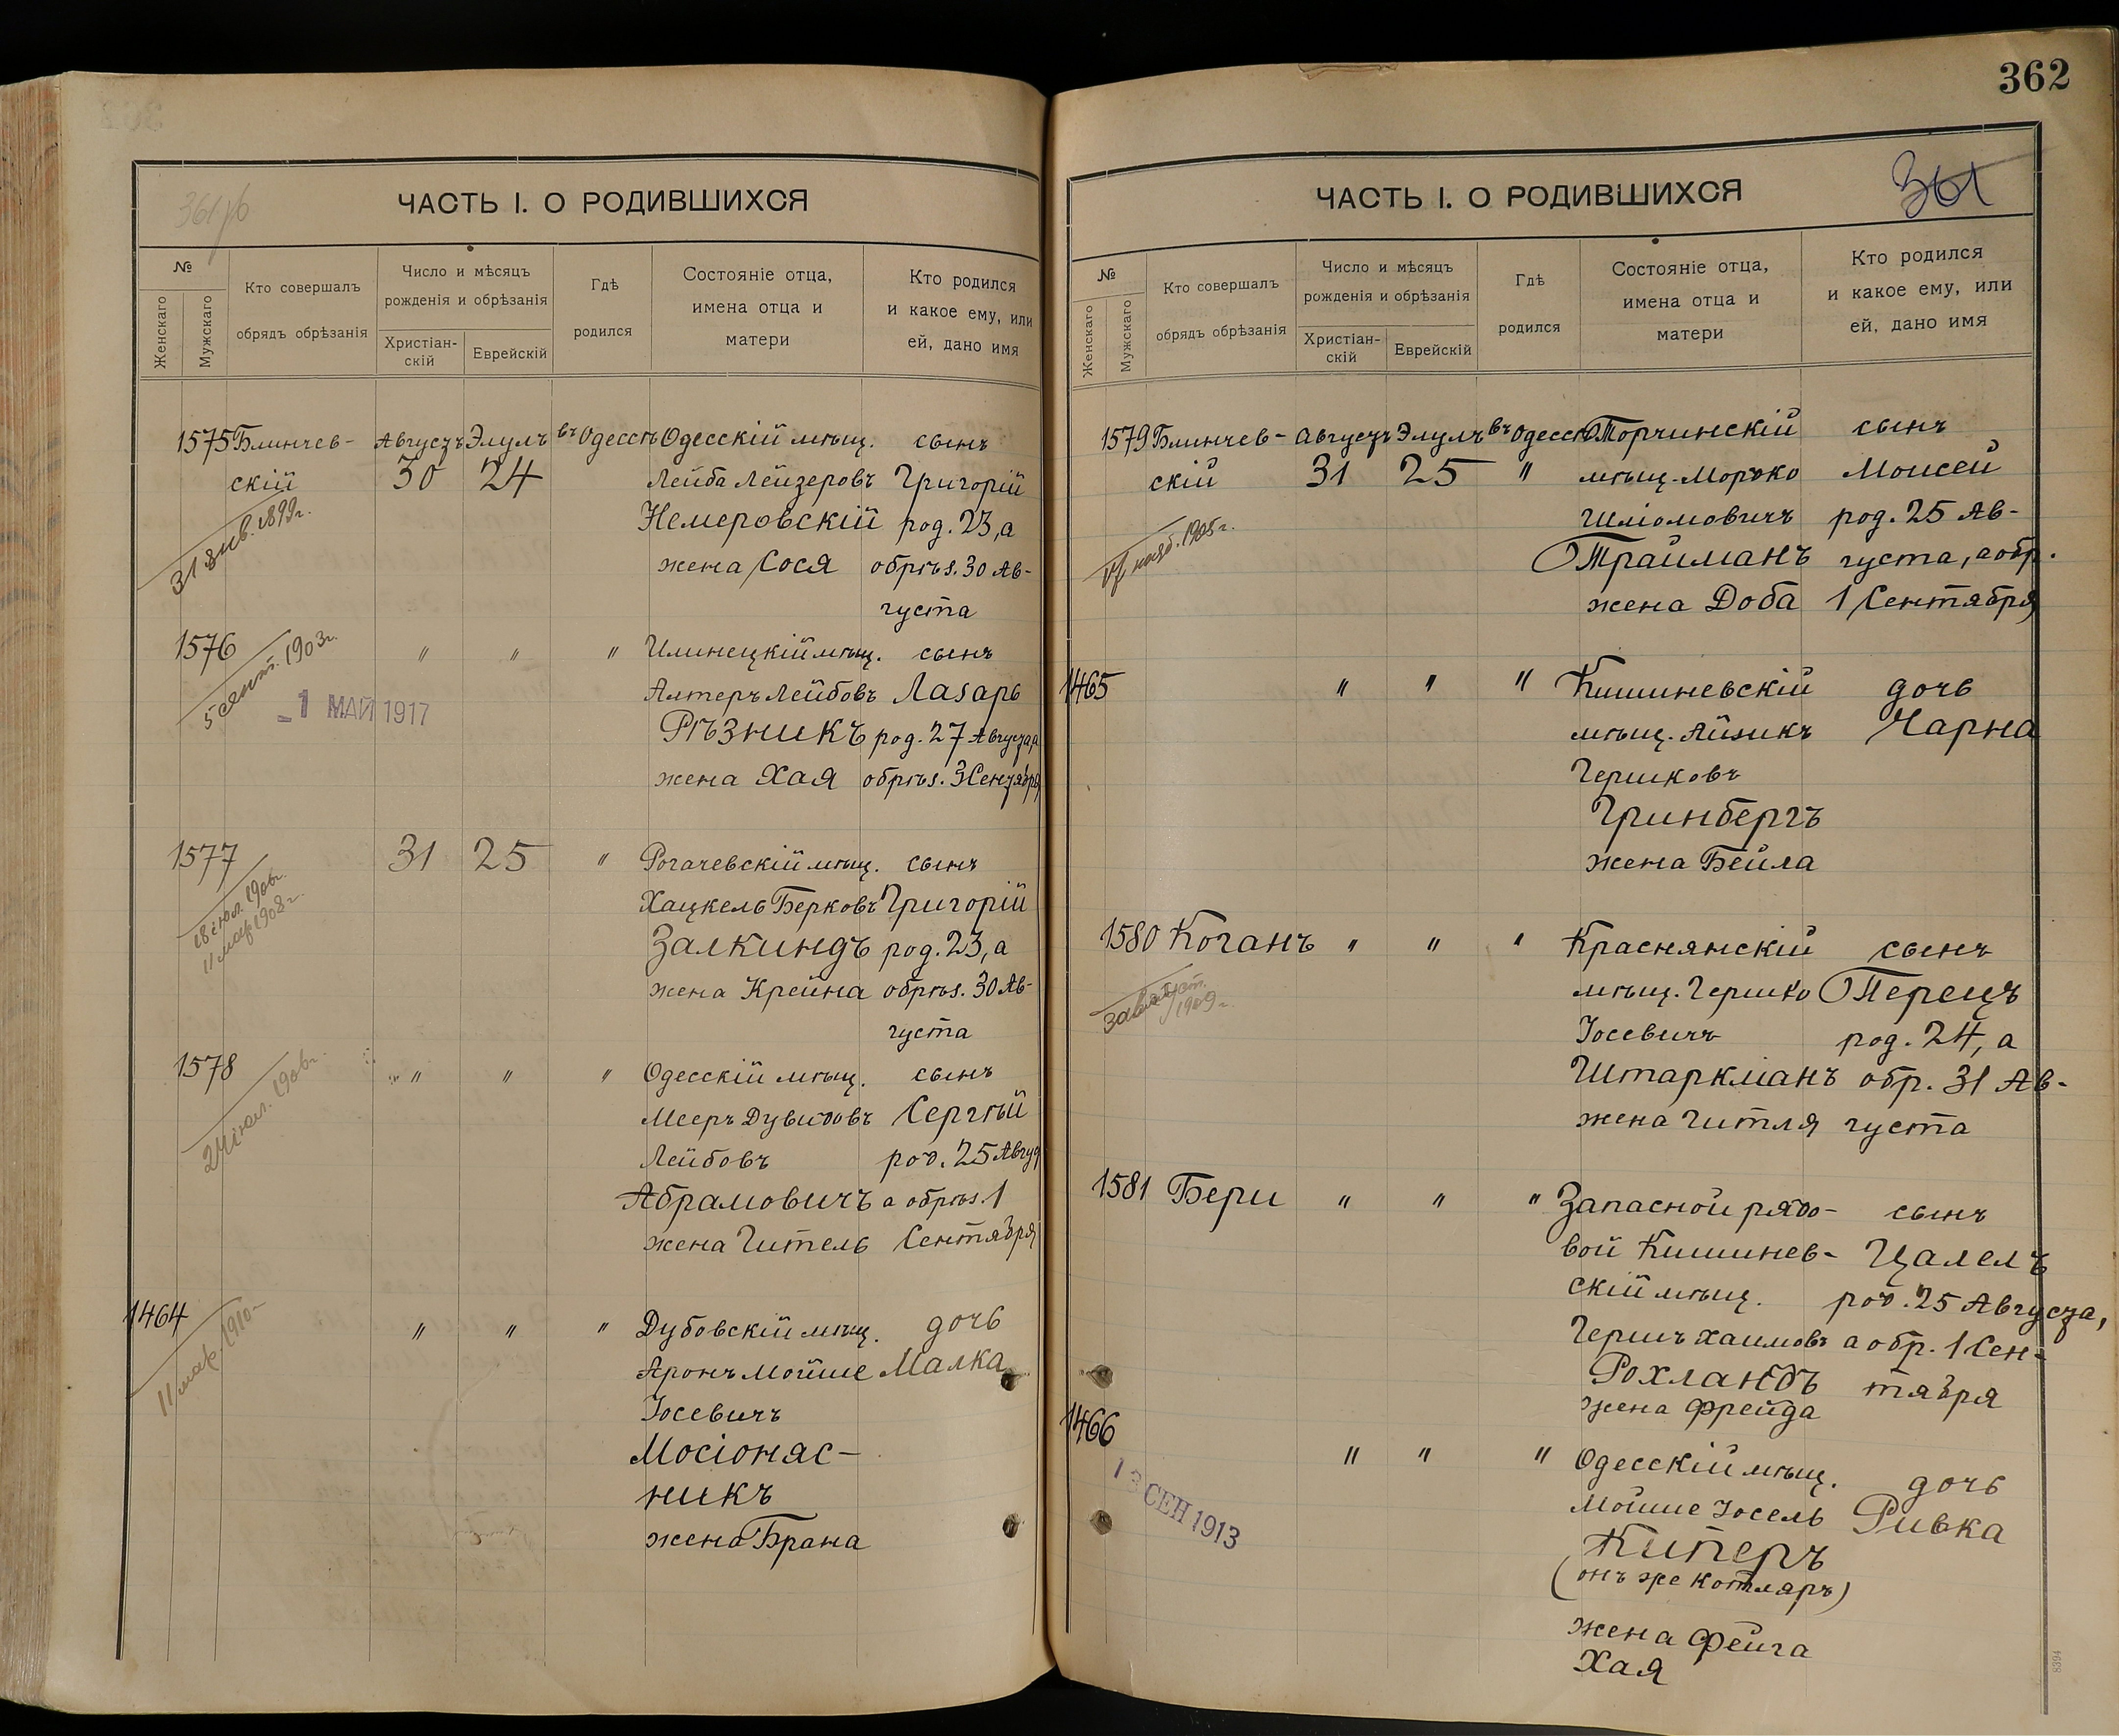 362
361 об
ЧАСТЬ I. О РОДИВШИХСЯ
№
Женскаго
Мужскаго
Кто совершалъ
обрядъ обрѣзанія
Число и мѣсяцъ
рожденія и обрѣзанія
Христіан-
скій
Еврейскій
Гдѣ
родился
Состояніе отца,
имена отца и
матери
Кто родился
и какое ему, или
ей, дано имя
1575 Блинчев- Августъ Элулъ въ Одессѣ Одесскій мѣщ. сынъ
скій 30 24 Лейба Лейзеровъ Григорій
Немеровскій род. 23, а
31 янв. 1899 г.
жена Сося обрѣз. 30 Ав-
густа
1576 " " " Илинецкій мѣщ. сынъ
5 сент. 1903 г.
Алтеръ Лейбовъ Лазарь
1 МАЙ 1917
Рѣзникъ род. 27 Августа, а
жена Хая обрѣз. 3 Сентября
1577 31 25 " Рогачевскій мѣщ. сынъ
18 іюл. 1906 г.
11 мар 1908 г.
Хацкель Берковъ Григорій
Залкиндъ род. 23, а
жена Крейна обрѣз. 30 Ав-
густа
1578 " " " Одесскій мѣщ. сынъ
24 іюл. 1906 г.
Мееръ Дувидовъ Сергѣй
Лейбовъ род. 25 Август
Абрамовичъ а обрѣз. 1
жена Гитель Сентября
1464 " " " Дубовскій мѣщ. дочь
11 мар. 1910
Аронъ Мойше Малка
Іосевичъ
Мосіоняс-
никъ
жена Брана
ЧАСТЬ I. О РОДИВШИХСЯ
361
№
Женскаго
Мужскаго
Кто совершалъ
обрядъ обрѣзанія
Число и мѣсяцъ
рожденія и обрѣзанія
Христіан-
скій
Еврейскій
Гдѣ
родился
Состояніе отца,
имена отца и
матери
Кто родился
и какое ему, или
ей, дано имя
1579 Блинчев- Августъ Элулъ въ Одессѣ Торчинскій сынъ
скій 31 25 " мѣщ. Мороко Моисей
Шліомовичъ род. 25 Ав-
нояб. 1905 г.
Трайманъ густа, а обр.
жена Доба 1 Сентября
1465 " " " Кишиневскій дочь
мѣщ. Айзикъ Чарна
Гершковъ
Гринбергъ
жена Бейла
1580 Коганъ " " " Краснянскій сынъ
мѣщ. Гершко Перецъ
1909 г.
Іосевичъ род. 24, а
Штаркманъ обр. 31 Ав-
жена Гитля густа
1581 Бери " " " Запасной рядо- сынъ
вой Кишинев- Цалелъ
скій мѣщ. род. 25 Августа,
Гершъ Хаимовъ а обр. 1 Сен-
Рохландъ тября
жена Фрейда
1466 " " " Одесскій мѣщ. дочь
13 СЕН 1913
Мойше Іосель Ривка
Киперъ
(онъ же Котляръ)
жена Фейга
Хая
8394